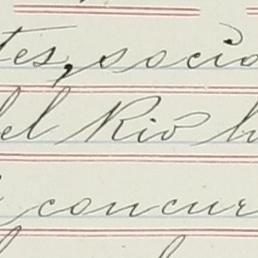 tes, socio
del Rio h
concur